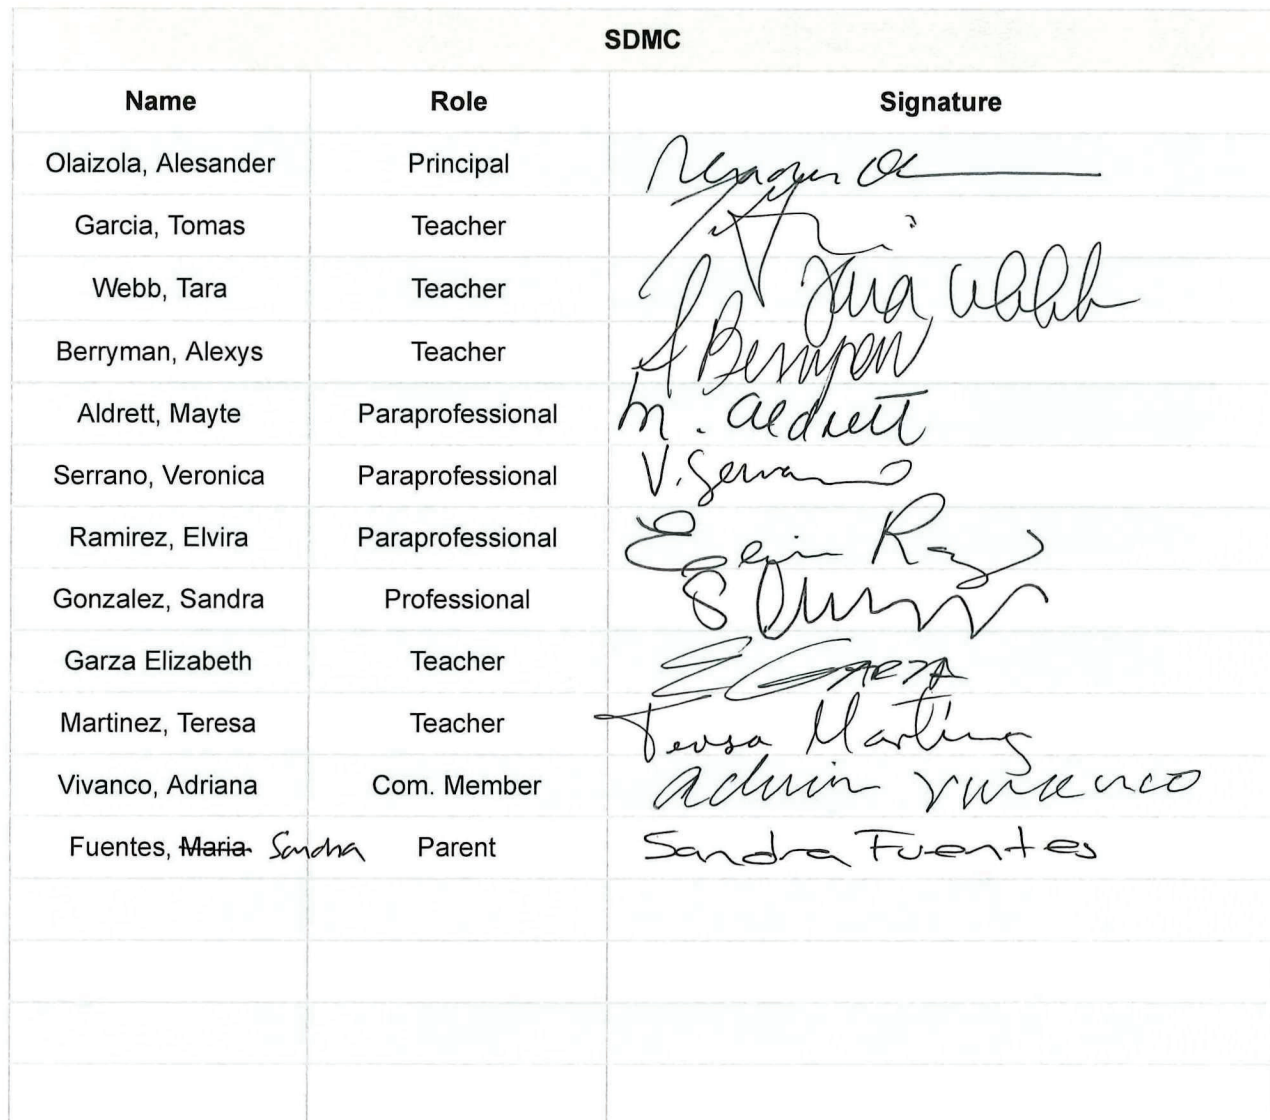 SDMC
Name Role Signature
Olaizola, Alesander Principal
Garcia, Tomas Teacher
Webb, Tara Teacher Tara Webb
Berryman, Alexys Teacher A Berryman
Aldrett, Mayte Paraprofessional M. Aldrett
Serrano, Veronica Paraprofessional V. Serrano
Ramirez, Elvira Paraprofessional
Gonzalez, Sandra Professional
Garza Elizabeth Teacher E GARZA
Martinez, Teresa Teacher Teresa Martinez
Vivanco, Adriana Com. Member Vivanco
Fuentes, Maria Sandra Parent Sandra Fuentes